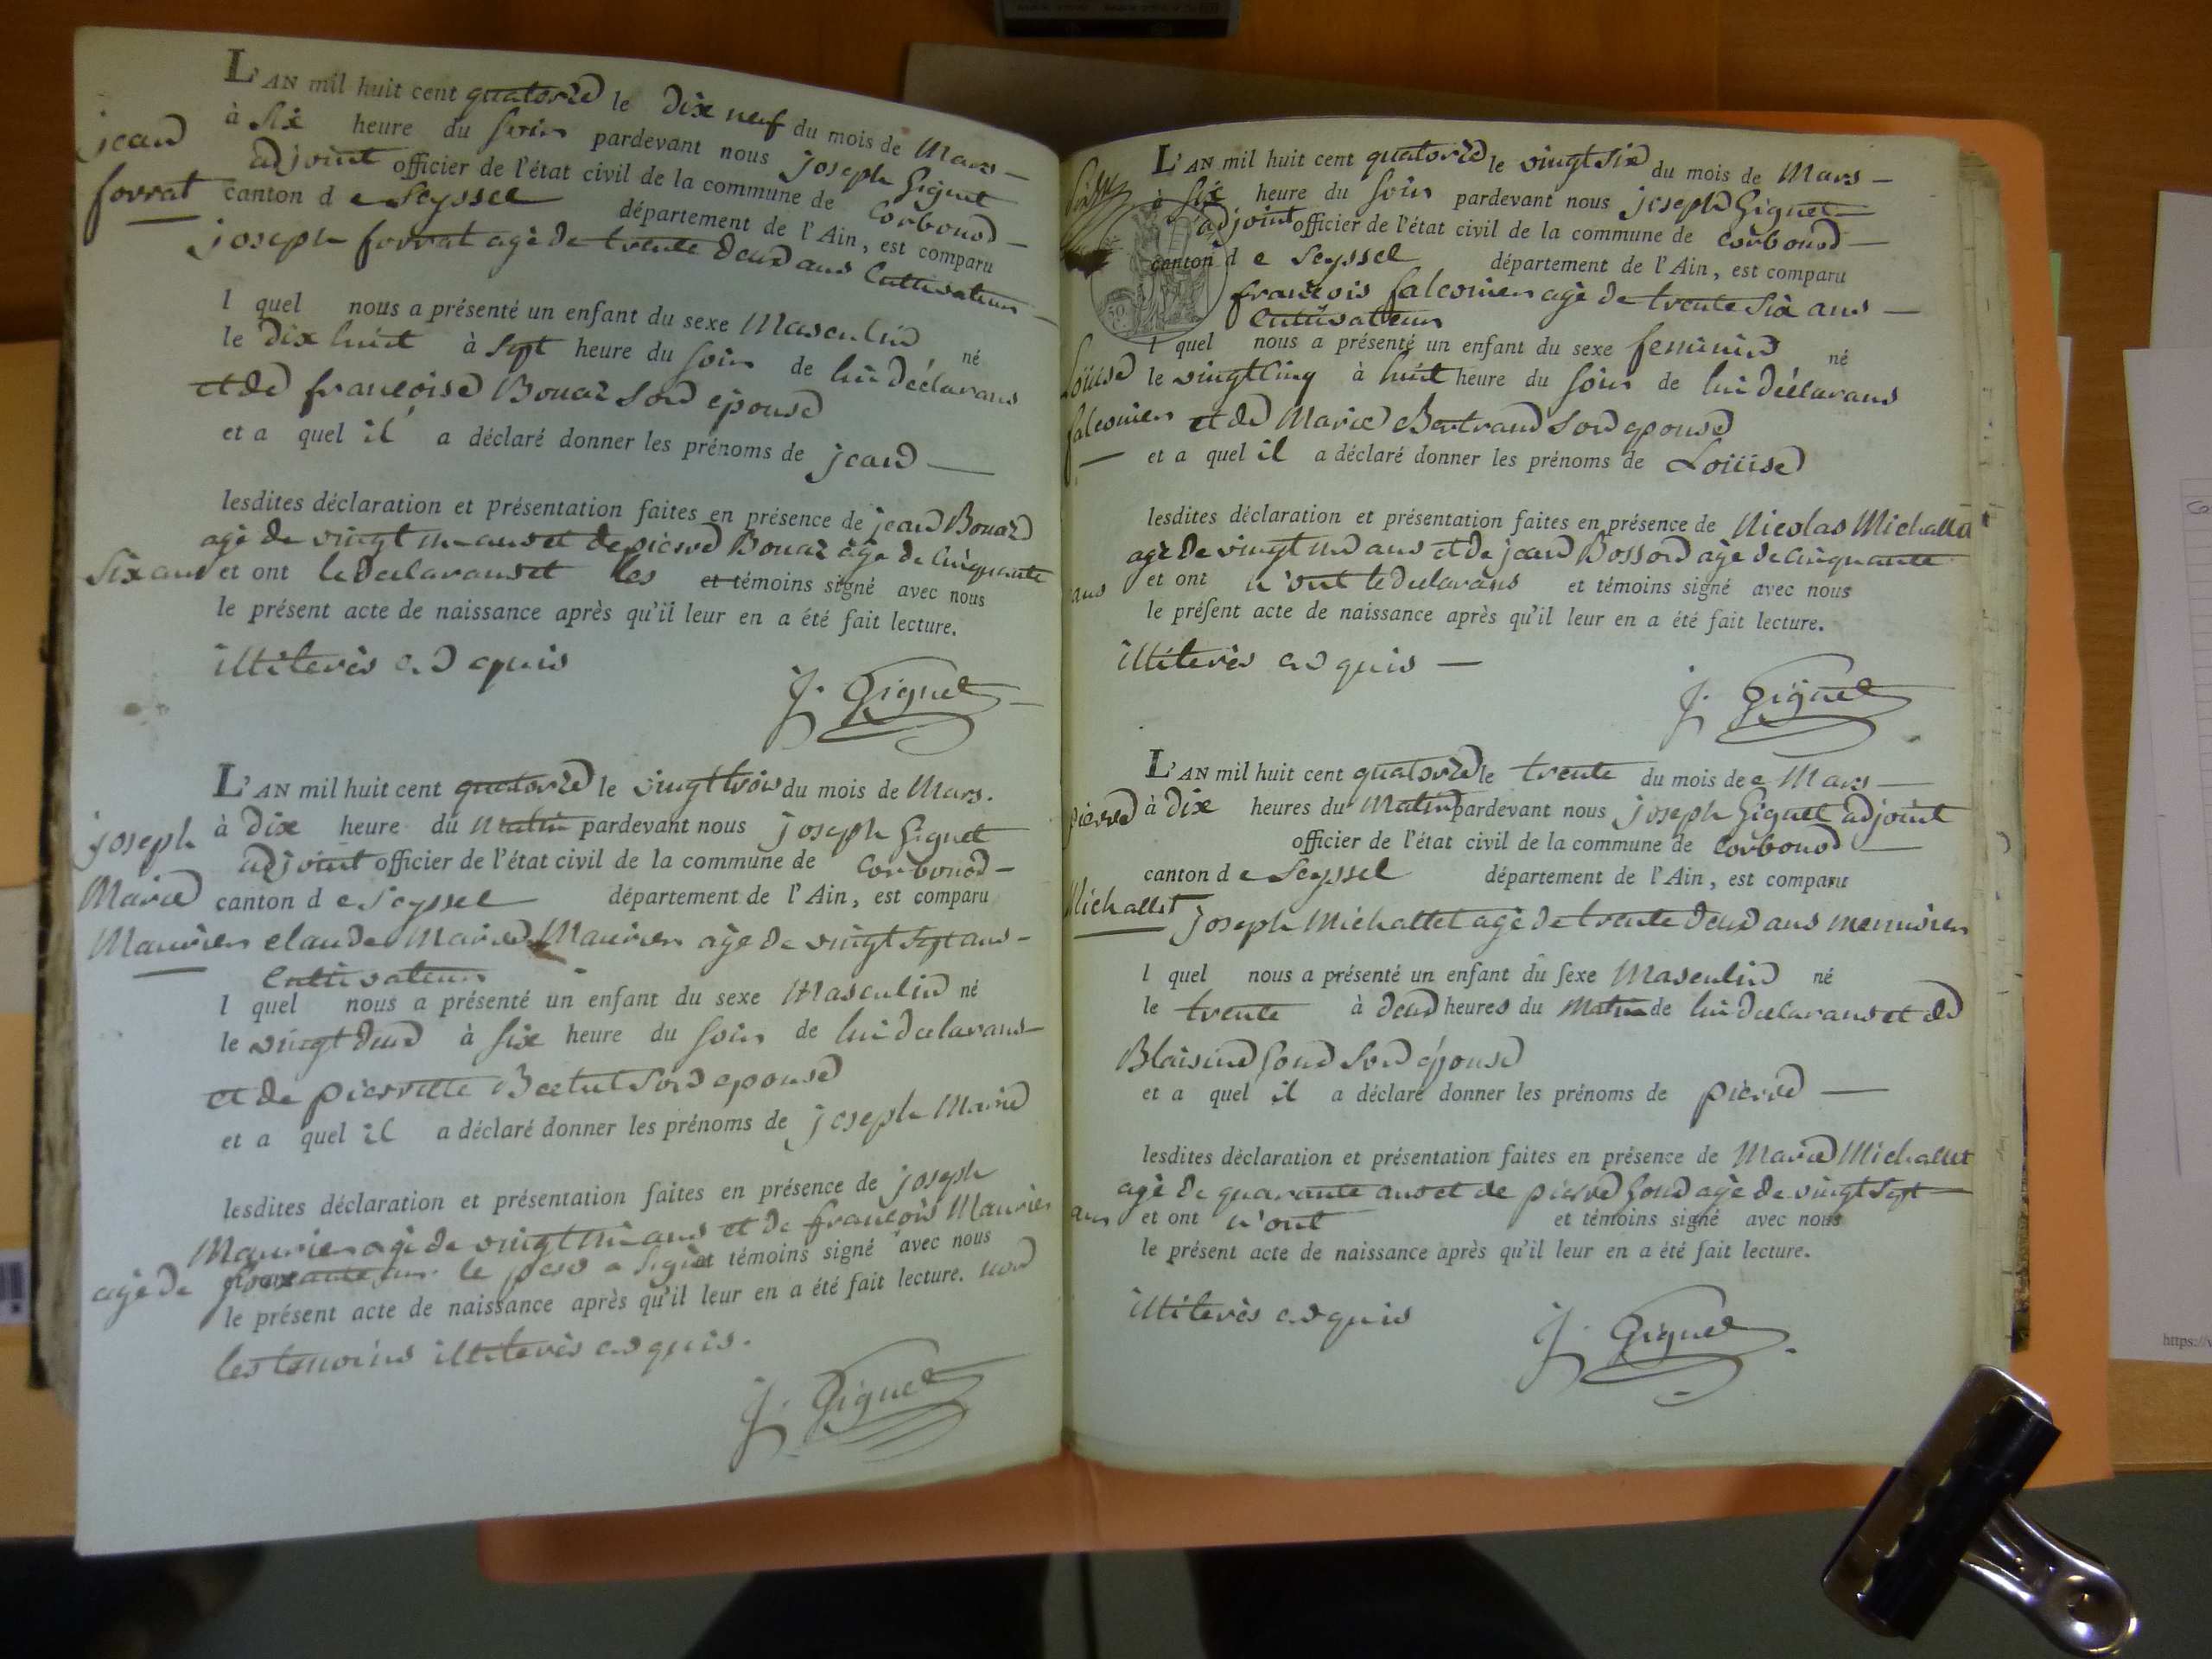 L'AN mil huit cent quatorze le dix neuf du mois de Mars —
à Six heure du soir pardevant nous joseph Giguet
jean
adjoint officier de l'état civil de la commune de Corbonod —
forrat
canton d e Seyssel département de l'Ain, est comparu
joseph forrat agè de trente deux ans Cultivateur —
l quel nous a présenté un enfant du sexe Masculin né
le dix huit à sept heure du soir de lui déclarans
et de francoise Bouaz son epouse
et a quel il a déclaré donner les prénoms de jean —
lesdites déclaration et présentation faites en présence de jean Bouaz
agè de vingt un ans et de pierre Bouaz âge de Cinquante
Six ans et ont le declarans et les et témoins signé avec nous
le présent acte de naissance après qu'il leur en a été fait lecture.
illiterès
J. Giguet
L'AN mil huit cent quatorze le vingt trois du mois de Mars.
à dix heure du Matin pardevant nous joseph Giguet
joseph
adjoint officier de l'état civil de la commune de Corbonod —
Marie
canton d e Seyssel département de l'Ain, est comparu
Maurier claude Marie Maurier age de vingt sept ans —
Cultivateur
l quel nous a présenté un enfant du sexe Masculin né
le vingt deux à six heure du soir de lui declarans —
et de pierrette Bertet son epouse
et a quel il a déclaré donner les prénoms de joseph Marie
lesdites déclaration et présentation faites en présence de joseph
Maurier agè de vingt un ans et de françois Maurier
age de le pere a signé et témoins signé avec nous
le présent acte de naissance après qu'il leur en a été fait lecture. non
les temoins illiterès
J. Giguet
L'AN mil huit cent quatorze le vingt six du mois de Mars —
à six heure du soir pardevant nous joseph Giguet
adjoint officier de l'état civil de la commune de Corbonod —
canton d e Seyssel département de l'Ain, est comparu
françois falconier agè de trente six ans —
Cultivateur
l quel nous a présenté un enfant du sexe feminin né
Loüise le vingt Cinq à huit heure du soir de lui déclarans
falconier et de Marie Bertrand son epouse
— et a quel il a déclaré donner les prénoms de Loüise
lesdites déclaration et présentation faites en présence de Nicolas Michallet
agè de vingt un ans et de jean Bosson agè de Cinquante
ans et ont n'ont le declarans et témoins signé avec nous
le présent acte de naissance après qu'il leur en a été fait lecture.
illiterès —
J. Giguet
L'AN mil huit cent quatorze le trente du mois de e Mars —
pierre à dix heures du Matin pardevant nous joseph Giguet adjoint
officier de l'état civil de la commune de Corbonod —
canton d e Seyssel département de l'Ain, est comparu
Michallet joseph Michallet agè de trente deux ans menuisier
l quel nous a présenté un enfant du sexe Masculin né
le trente à deux heures du Matin de lui declarans et de
Blaisine Gond son épouse
et a quel il a déclaré donner les prénoms de pierre —
lesdites déclaration et présentation faites en présence de Marie Michallet
agè de quarante ans et de pierre Gond agè de vingt sept
ans et ont n'ont et témoins signé avec nous
le présent acte de naissance après qu'il leur en a été fait lecture.
illiterès
J. Giguet
https://v